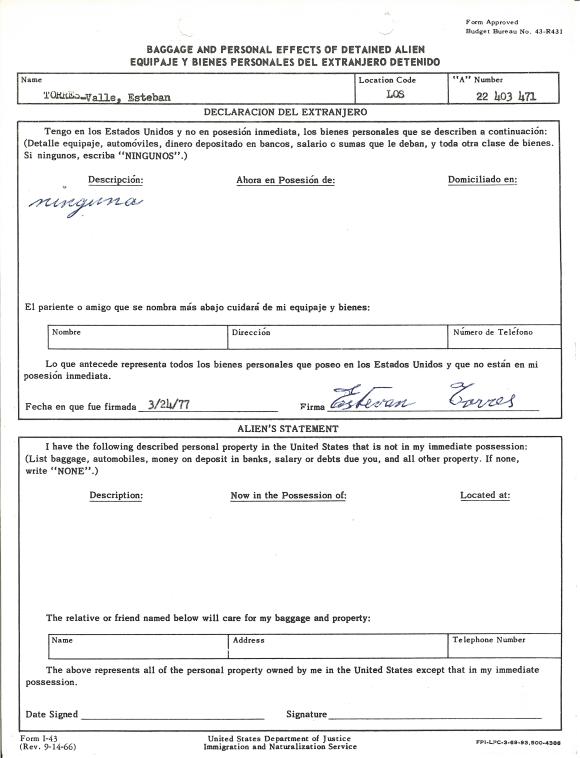 Form Approved
Budget Bureau No. 43-R431
BAGGAGE AND PERSONAL EFFECTS OF DETAINED ALIEN
EQUIPAJE Y BIENES PERSONALES DEL EXTRANJERO DETENIDO
Name Location Code "A" Number
TORRES-Valle, Esteban LOS 22 403 471
DECLARACION DEL EXTRANJERO
Tengo en los Estados Unidos y no en posesión inmediata, los bienes personales que se describen a continuación:
(Detalle equipaje, automóviles, dinero depositado en bancos, salario o sumas que le deban, y toda otra clase de bienes.
Si ningunos, escriba "NINGUNOS".)
Descripción: Ahora en Posesión de: Domiciliado en:
ninguna
El pariente o amigo que se nombra más abajo cuidará de mi equipaje y bienes:
Nombre Dirección Número de Teléfono
Lo que antecede representa todos los bienes personales que poseo en los Estados Unidos y que no están en mi
posesión inmediata.
Fecha en que fue firmada 3/24/77 Firma Estevan Torres
ALIEN'S STATEMENT
I have the following described personal property in the United States that is not in my immediate possession:
(List baggage, automobiles, money on deposit in banks, salary or debts due you, and all other property. If none,
write "NONE".)
Description: Now in the Possession of: Located at:
The relative or friend named below will care for my baggage and property:
Name Address Telephone Number
The above represents all of the personal property owned by me in the United States except that in my immediate
possession.
Date Signed Signature
Form I-43 United States Department of Justice
(Rev. 9-14-66) Immigration and Naturalization Service FPI-LPC-3-69-93,500-4386